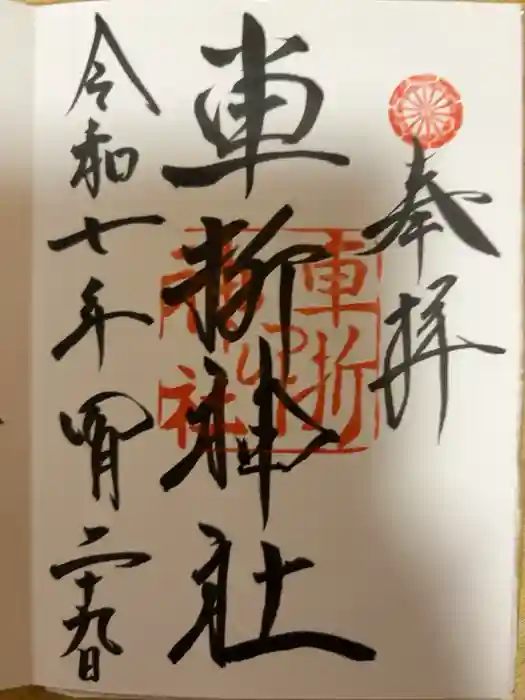 奉拝
車折神社
令和七年四月二十九日
車折
神社